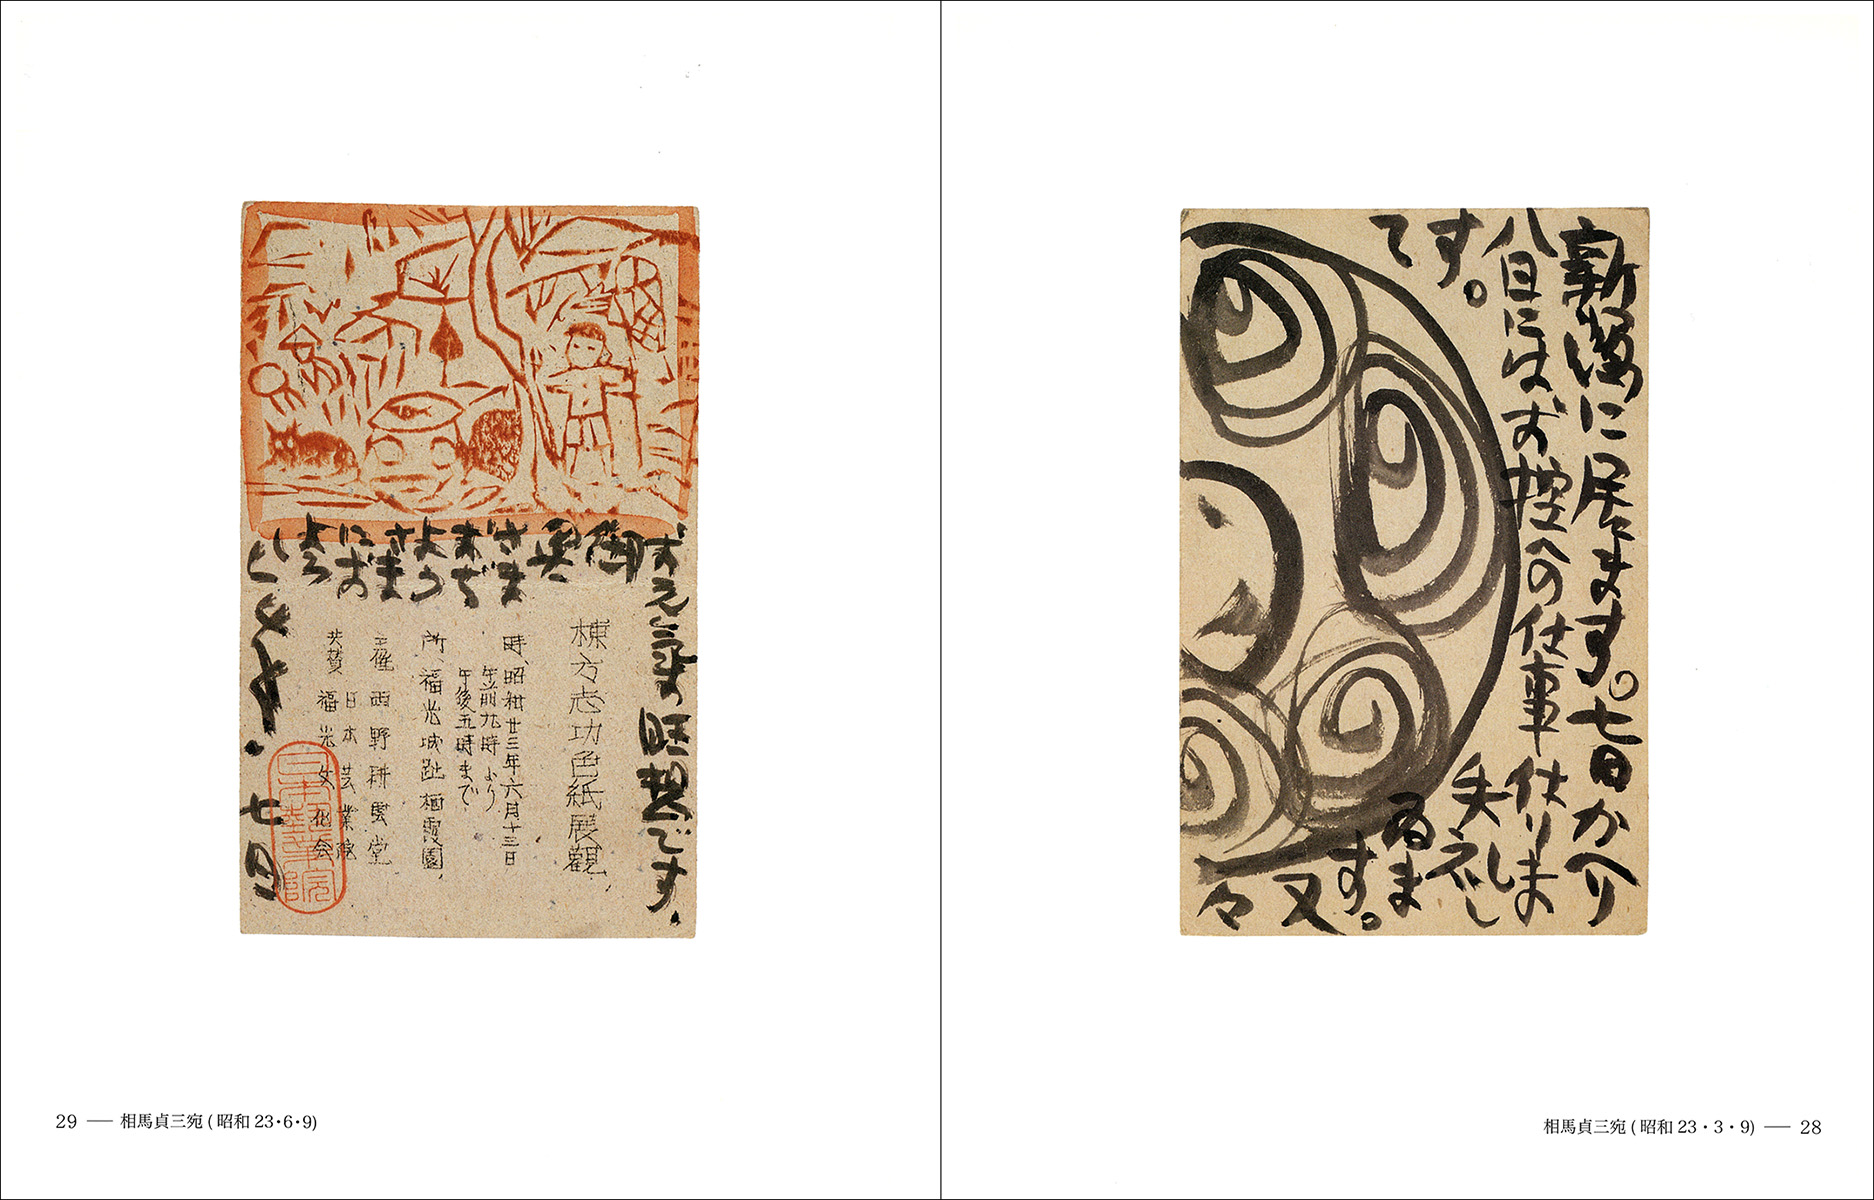 新潟に居ます。七日かへり
八日にはお控への仕事仕りま
す。失礼し
て
ゐま
す。又
々
相馬貞三宛 ( 昭和 23・3・9) — 28
お元気旺想です。
御奥
さま
まで
よう
さま
にお
よろ
しと
七日
棟方志功色紙展観、
時、昭和廿三年六月十三日
午前九時より
午後五時まで、
所、福光城趾栖霞園、
主催 西野耕雲堂
共賛 日本芸業院
福光文化会
29 — 相馬貞三宛 ( 昭和 23・6・9)